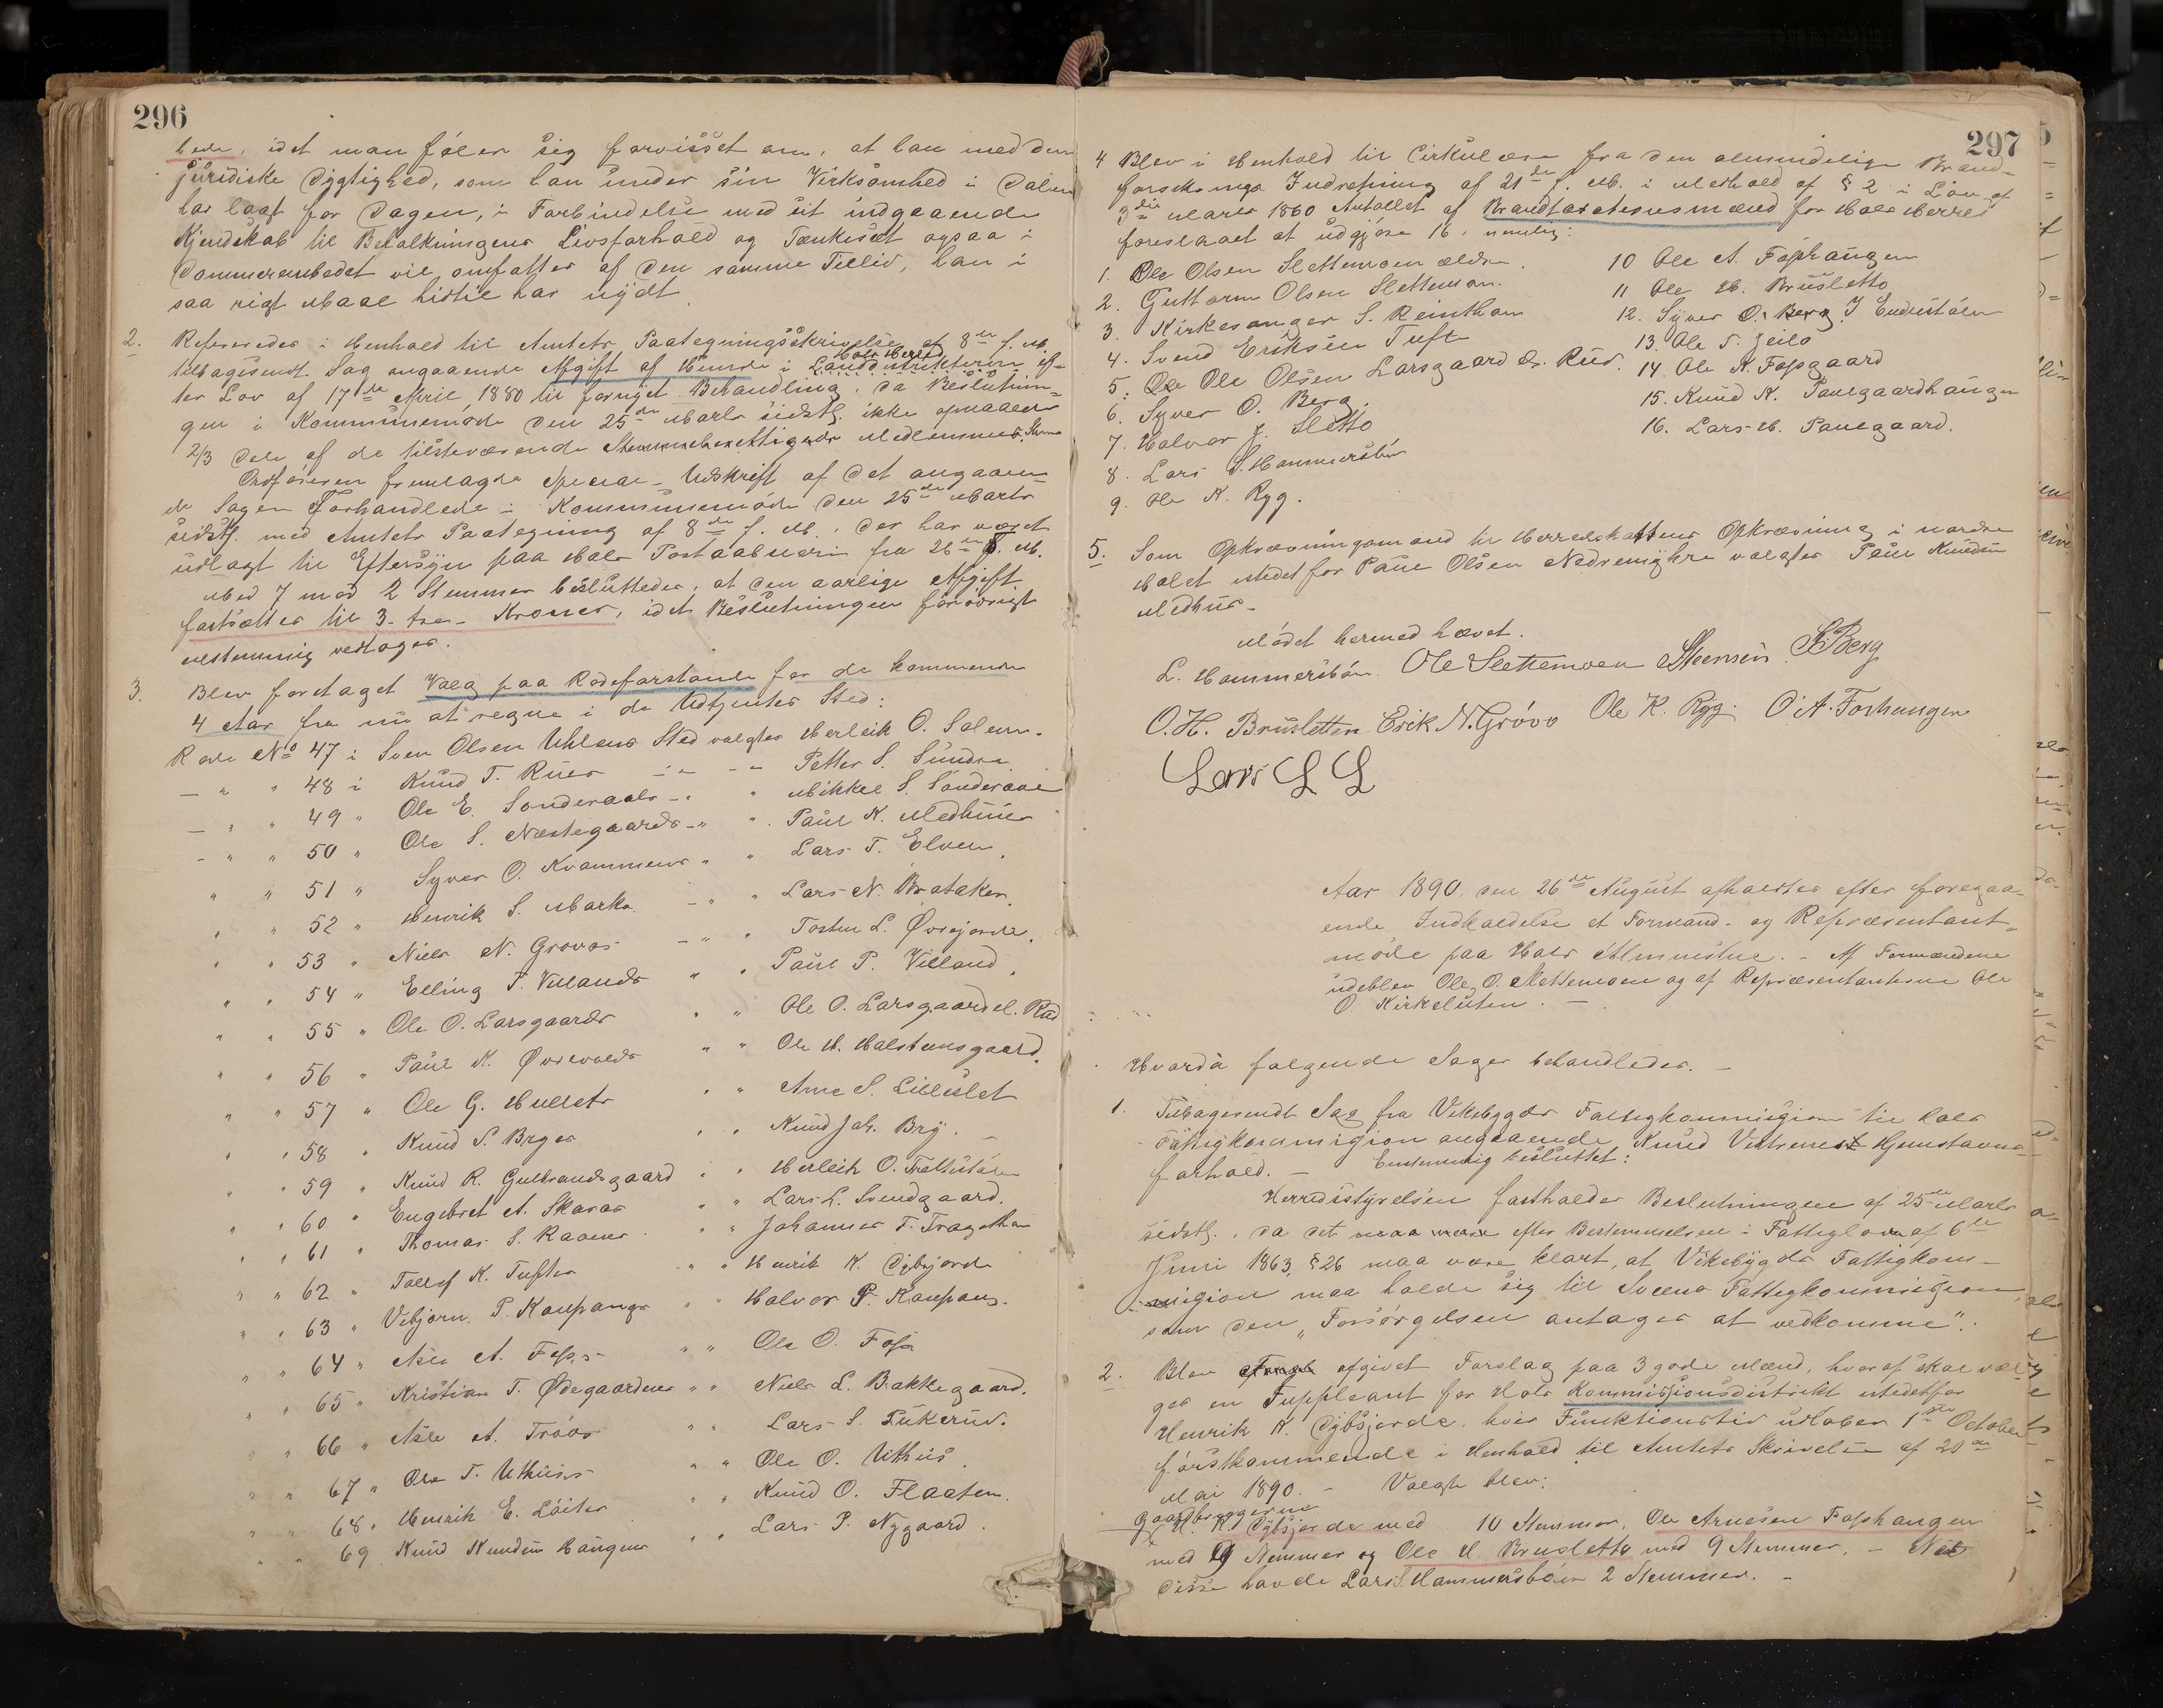 296
bede, idet man føler sig forvisset om, at han med den
juridiske Dygtighed, som han under sin Virksomhed i Dalen
har lagt for Dagen, i Forbindelse med sit indgaaende
Kjendskab til Befolkningens Livsforhold og Tænkesæt ogsaa i
Dommerembedet vil omfattes af den samme Tillid, han i
saa rigt Maal hidtil har nydt.
2. Refereredes i Henhold til Amtets Paategningsskrivelse af 8de f. M.
Hols Herred
tilbagesendt Sag angaaende Afgift af Hunde i Landdistrikterne ef-
ter Lov af 17de April 1880 til fornyet Behandling, da Beslutnin-
gen i Kommunemøde den 25de Marts sidstl. ikke opnaaede
2/3 Dele af de tilsteværende Stemmeberettigede Medlemmers Stemme
Ordføreren fremlagde Special-Udskrift af det angaaen-
de Sagen Forhandlede i Kommunemøde den 25de Marts
sidstl. med Amtets Paategning af 8de f. M., der har været
udlagt til Eftersyn paa Hols Postaabneri fra 26de f. M.
Med 7 mod 2 Stemmer besluttedes, at den aarlige Afgift
fastsættes til 3 - tre - Kroner, idet Beslutningen forøvrigt
enstemmig vedtoges.
3. Blev foretaget Valg paa Rodeforstande for de kommende
4 Aar fra nu at regne i de Udtjentes Sted:
Rode No 47 i Sven Olsen Uhlens Sted valgtes Herleik O. Solem.
— " " 48 i Knud T. Rues — " — " Petter S. Sundre
— " " 49 " Ole E. Sønderaals — " " Mikkel S. Sønderaal
- " " 50 " Ole S. Næstegaards - " " Paul K. Medhus
" " 51 " Syver O. Kvammens " " Lars T. Elven.
" " 52 " Henrik S. Marks. - " " Lars N. Brataker.
" " 53 " Niels N. Grovos - " " Tosten L. Øvrejorde.
" " 54 " Elling T. Villands " " Paul P. Villand.
" " 55 " Ole O. Larsgaards " " Ole O. Larsgaard el. Rud
" " 56 " Paul K. Øvrevolds " " Ole H. Halstensgaard.
" " 57 " Ole G. Hullets " " Arne S. Lilleslet
" " 58 " Knud S. Bryes " " Knud Joh. Bry. -
" " 59 " Knud R. Gulbrandsgaard " " Herleik O.
" " 60 " Engebret A. Skaros " " Lars L. Svendgaard.
" " 61 " Thomas S. Raaens " " Johannes T. Tragethon
" " 62 " Tollef K. Tuftes " " Henrik K. Dybsjorde
" " 63 " Vebjørn P. Kaupangs " " Halvor P. Kaupang.
" " 64 " Asle A. Foss " " Ole O. Foss
" " 65 " Kristian T. Ødegaardens " " Niels L. Bakkegaard.
" " 66 " Asle A. Trøos " " Lars S. Pukerud.
" " 67 " Ole T. Uthus's " " Ole O. Uthus.
" " 68 " Henrik E. Løites " " Knud O. Flaaten.
" " 69 Knud Knudsen Haugens " " Lars P. Nygaard.
297
4 Blev i Henhold til Cirkulære fra den almindelige Brand-
forsikrings Indretning af 21de f. M. i Medhold af § 2 i Lov af
3die Marts 1860 Antallet af Brandtaxtasjonsmænd for Hols Herred
foreslaaet at udgjøre 16, nemlig:
1. Ole Olsen Slettemoen ældre.
2. Guttorm Olsen Slettemoen.
3. Kirkesanger S. Reinthon
4. Svend Eriksen Tufte
5. Ole Olsen Larsgaard el. Rud.
6. Syver O. Berg.
7. Halvor J. Sletto
8. Lars S. Hammersbøn
9. Ole K. Ryg.
10 Ole A. Foshaugen
11 Ole H. Brusletto
12. Syver O. Berg
13. Ole T. Jeilo
14. Ole K. Fossgaard
15. Knud K. Paulgaardhaugen
16. Lars H. Paulgaard.
5. Som Opkrævningsmand til Herredskattens Opkrævning i nordre
Hol istedetfor Paul Olsen Nedremyhre valgtes Paul Knudsen
Medhus.
Mødet hermed hævet.
L. Hammersbøn. Ole Slettemoen Steensen S. Berg
O. H. Brusletten Erik N. Gróvo Ole K. Ryg. O A. Foshaugen
Lars L L
Aar 1890 den 26de August afholdtes efter foregaa-
ende Indkaldelse et Formand- og Repræsentant-
møde paa Hols Almuestue. - Af Formændene
udeblev Ole O. Slettemoen og af Repræsentanterne Ole
O. Kirkeluten. —
Hvorda følgende Sager behandledes. —
1. Tilbagesendt Sag fra Vikebygds Fattigkommission til Hols
Fattigkommission angaaende Knud Hjemstavns-
forhold. — Enstemmig besluttet:
Herredsstyrelsen fastholder Beslutningen af 25de Marts
sidstl., da det maa efter Bestemmelsen i Fattigloven af 6te
Juni 1863, § 26 maa være klart, at Vikebygds Fattigkom-
mission maa holde sig til Sveens Fattigkommission,
som den "Forsørgelsen antages at vedkomme".
2. Blev afgivet Forslag paa 3 gode Mænd, hvoraf skal væl-
ges en Suppleant for Hols Kommissionsdistrikt istedetfor
Henrik K. Dybsjorde, hvis Funktionstid udløber 1ste October
førstkommende i Henhold til Amtets Skrivelse af 20de
Mai 1890. - Valgte blev:
Gaardbrugerne
H. K. Dybsjorde med 10 Stemmer, Ole Arnesen Foshaugen
med 9 Stemmer og Ole H. Brusletto med 9 Stemmer. -
disse havde Lars S. Hammersbøn 2 Stemmer. -